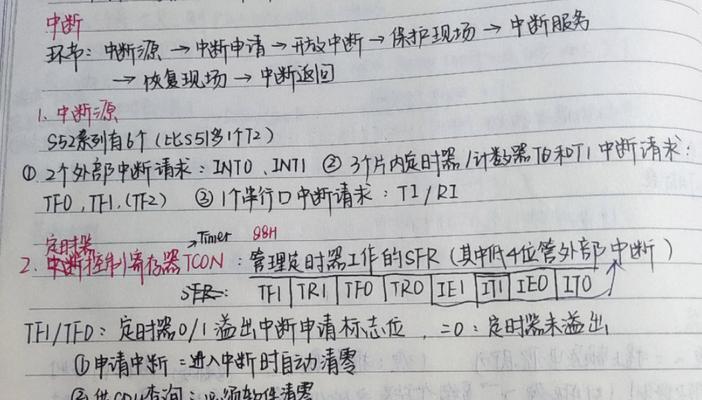 中断
环节：中断源 → 中断申请 → 开放中断 → 保护现场 → 中断服务
→ 恢复现场 → 中断返回
1. 中断源
S52系列有6个（比S51多1个T2）
① 2个外部中断请求：INT0、INT1 ② 3个片内定时器/计数器T0和T1中断请求：
TF0、TF1、(TF2) ③ 1个串行口中断请求：TI/RI
定时器 → Timer 88H
2. 中断控制寄存器TCON：管理定时器工作的SFR（其中低4位管外部中断）
SFR: TF1 TR1 TF0 TR0 IE1 IT1 IE0 IT0
TF1/TF0：定时器0/1溢出中断申请标志位，=0：定时器未溢出
①申请中断：进入中断时自动清零
②供CPU查询：必须软件清零